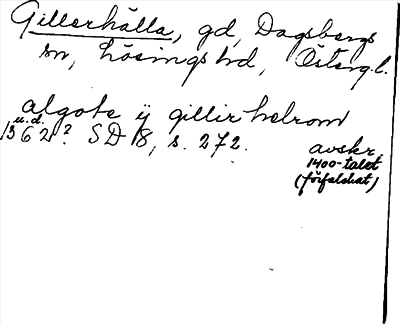 Gillerhälla, gd, Dagsbergs
sn, Lösings hd, Östergl.
algote ÿ gillirhelrom
u.d.
1362? SD 8, s. 272.
avskr.
1400-talet
(förfalskat)